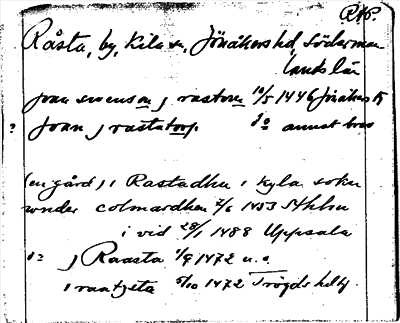 RAÄ.
Råsta, by, Kila sn, Jönåkers hd, Söderman
lands län
joan swenson j rastom 10/5 1446 Jönåkers
? joan j rastatorp do annat brev
(en gård) i Rastadhu i kyla sokn
under colmardhen 2/6 1453 Sthlm
i vid 28/1 1488 Uppsala
do j Raasta 1/9 1472 u.o.
i raatzeta 5/10 1472 Trögds